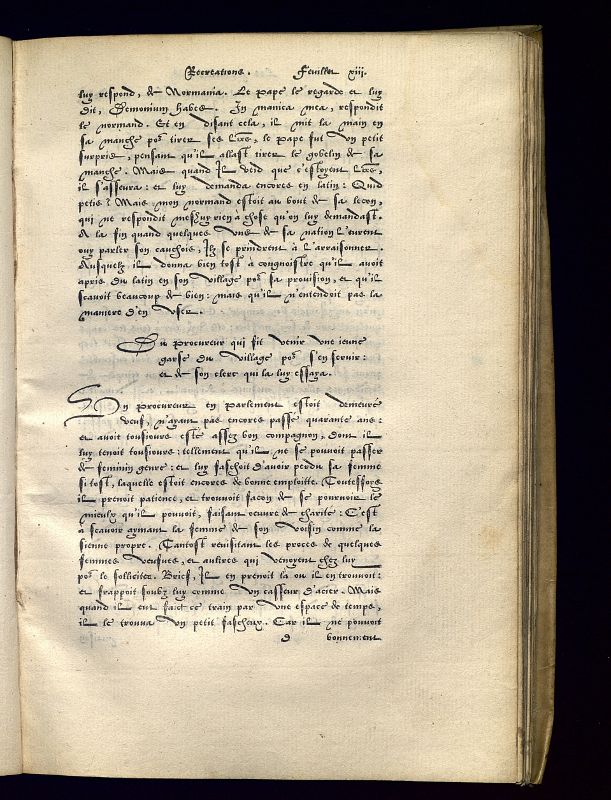 Recreations. Feuillet xiij.
luy respond, de Normania. Le Pape le regarde et luy
dit, Demonium habes. In manica mea, respondit
le normand. Et en disant cela, il mit la main en
sa manche pos tirer ses lr̃es, le Pape fut vn petit
surpris, pensant qu'il allast tirer le gobelin de sa
manche. Mais quand Il veid que c'estoyent Lr̃es,
il s'asseura: et luy demanda encores en latin: Quid
petis? Mais mon normand estoit au bout de sa lecon,
qui ne respondit meshuy rien a chose qu'on luy demandast.
A la fin quand quelques vns de sa nation l'eurent
ouy parler son cauchois, Ilz se prindrent à l'arraisonner.
Ausquelz il donna bien tost a congnoistre qu'il auoit
apris du latin en son village pos sa prouision, et qu'il
scauoit beaucoup de bien: mais qu'il n'entendoit pas la
maniere d'en vser.
Du procureur qui fit venir vne ieune
garse du village pos s'en seruir:
et de son clerc qui la luy essaya.
Vn procureur en parlement estoit demeuré
veuf, n'ayant pas encores passé quarante ans:
et auoit tousiours esté assez bon compagnon, dont il
luy tenoit tousiours: tellement qu'il ne se pouuoit passer
de feminin genre: et luy faschoit d'auoir perdu sa femme
si tost, laquelle estoit encores de bonne emploitte. Toutesfoys
il prenoit patience, et trouuoit facon de se pouruoir le
mieulx qu'il pouuoit, faisant oeuure de charité: C'est
à scauoir aymant la femme de son voisin comme la
sienne propre. Tantost reuisitant les proces de quelques
femmes veufues, et aultres qui venoyent chez luy
pos le solliciter. Brief, Il en prenoit la ou il en trouuoit:
et frappoit soubz luy comme vn casseur d'acier. Mais
quand il eut faict ce train par vne espace de temps,
il le trouua vn petit fascheux. Car il ne pouuoit
d bonnement